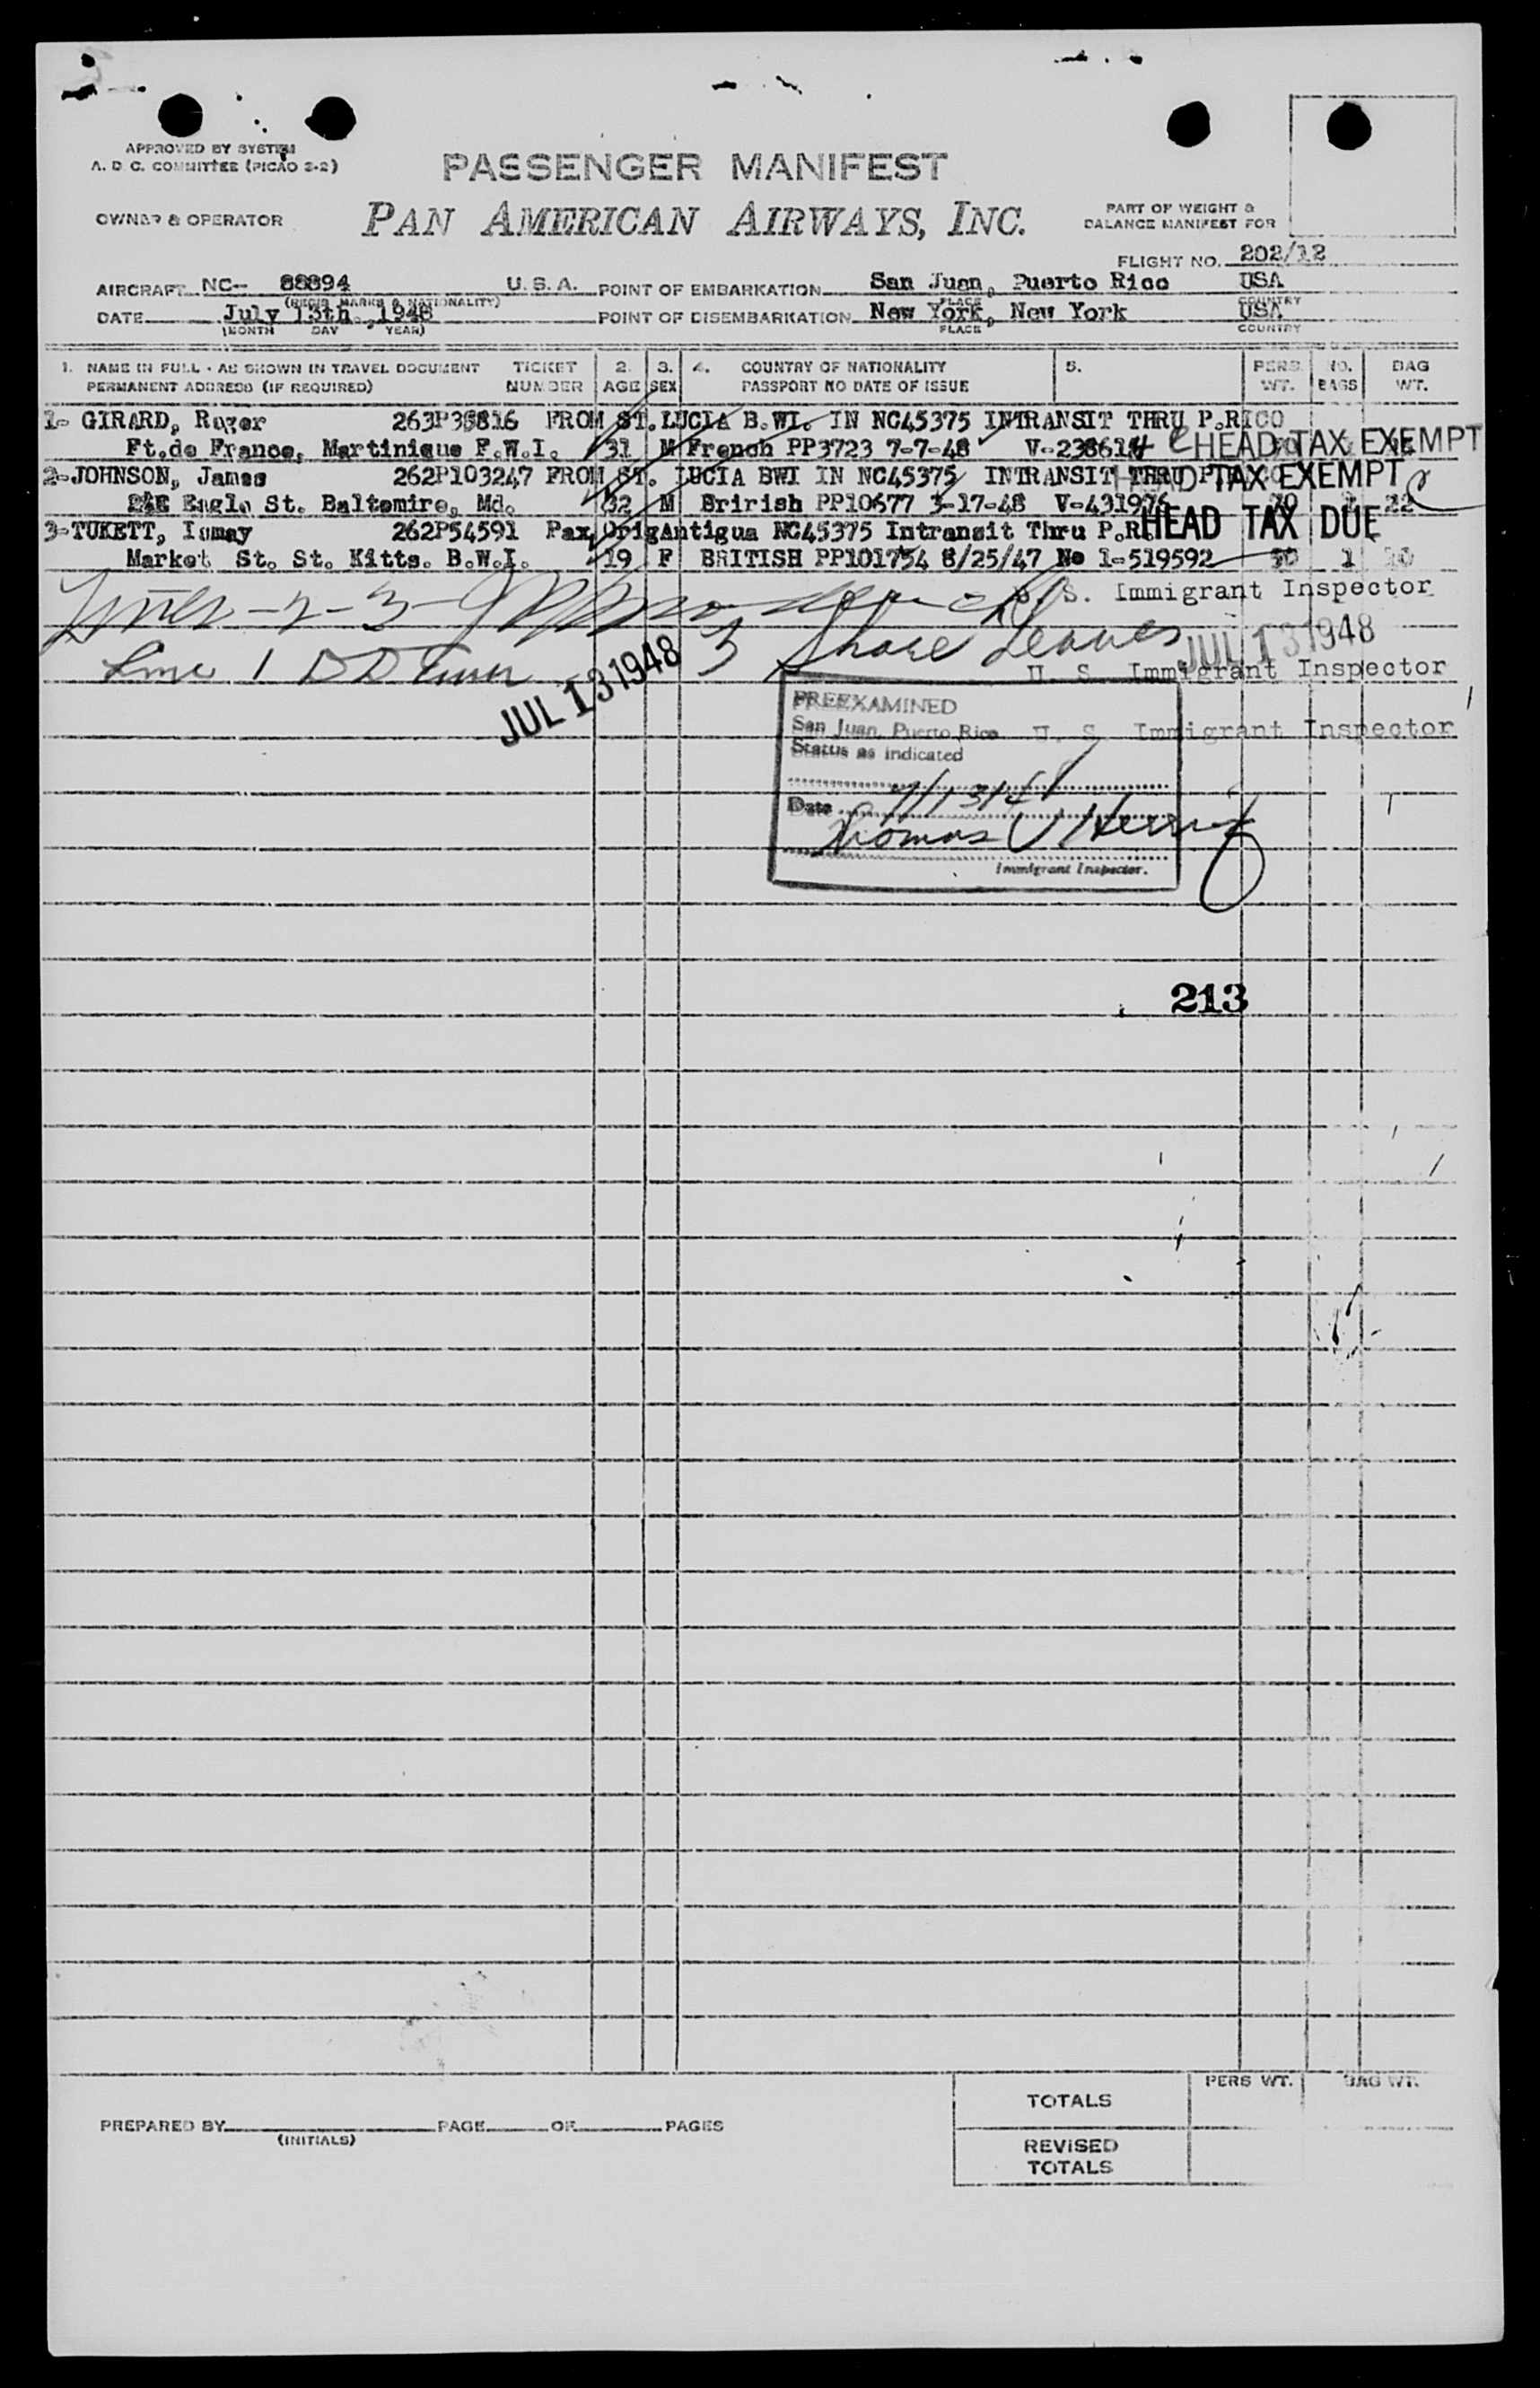 APPROVED BY SYSTEM
A. D. C. COMMITTEE (PICAO 2-2)
PASSENGER MANIFEST
OWNER & OPERATOR
PAN AMERICAN AIRWAYS, INC.
PART OF WEIGHT &
BALANCE MANIFEST FOR
FLIGHT NO. 202/12
AIRCRAFT NC- 88894 U.S.A. POINT OF EMBARKATION San Juan, Puerto Rico USA
(REGIS. MARKS & NATIONALITY) PLACE COUNTRY
DATE July 13th.,1948 POINT OF DISEMBARKATION New York, New York USA
(MONTH DAY YEAR) PLACE COUNTRY
1. NAME IN FULL - AS SHOWN IN TRAVEL DOCUMENT TICKET 2. 3. 4. COUNTRY OF NATIONALITY 5. PERS. NO. BAG
PERMANENT ADDRESS (IF REQUIRED) NUMBER AGE SEX PASSPORT NO DATE OF ISSUE WT. BAGS WT.
1- GIRARD, Roger FROM ST.LUCIA B.WI. IN NC45375 INTRANSIT THRU P.RICO
Ft.de France, Martinique F.W.I. 31 M French PP3723 7-7-48 HEAD TAX EXEMPT
2-JOHNSON, James 262P103247 FROM ST. LUCIA BWI IN NC45375 INTRANSIT THRU HEAD TAX EXEMPT
Eagle St. Baltomire, Md. 32 M Brirish PP10677 3-17-48 22
3-TUKETT, 262P54591 Pax, OrigAntigua NC45375 Intransit Thru P.R. HEAD TAX DUE
Market St. St. Kitts. B.W.I. 19 F BRITISH PP101754 8/25/47 No 1-519592 1
U. S. Immigrant Inspector
3 Shore Leaves JUL 13 1948
Line 1 JUL 13 1948 U. S. Immigrant Inspector
PREEXAMINED
San Juan, Puerto Rico U. S. Immigrant Inspector
Status as indicated
Date 7/13/48
Thomas
Immigrant Inspector.
213
PERS WT. BAG WT.
TOTALS
PREPARED BY PAGE OF PAGES
(INITIALS)
REVISED
TOTALS